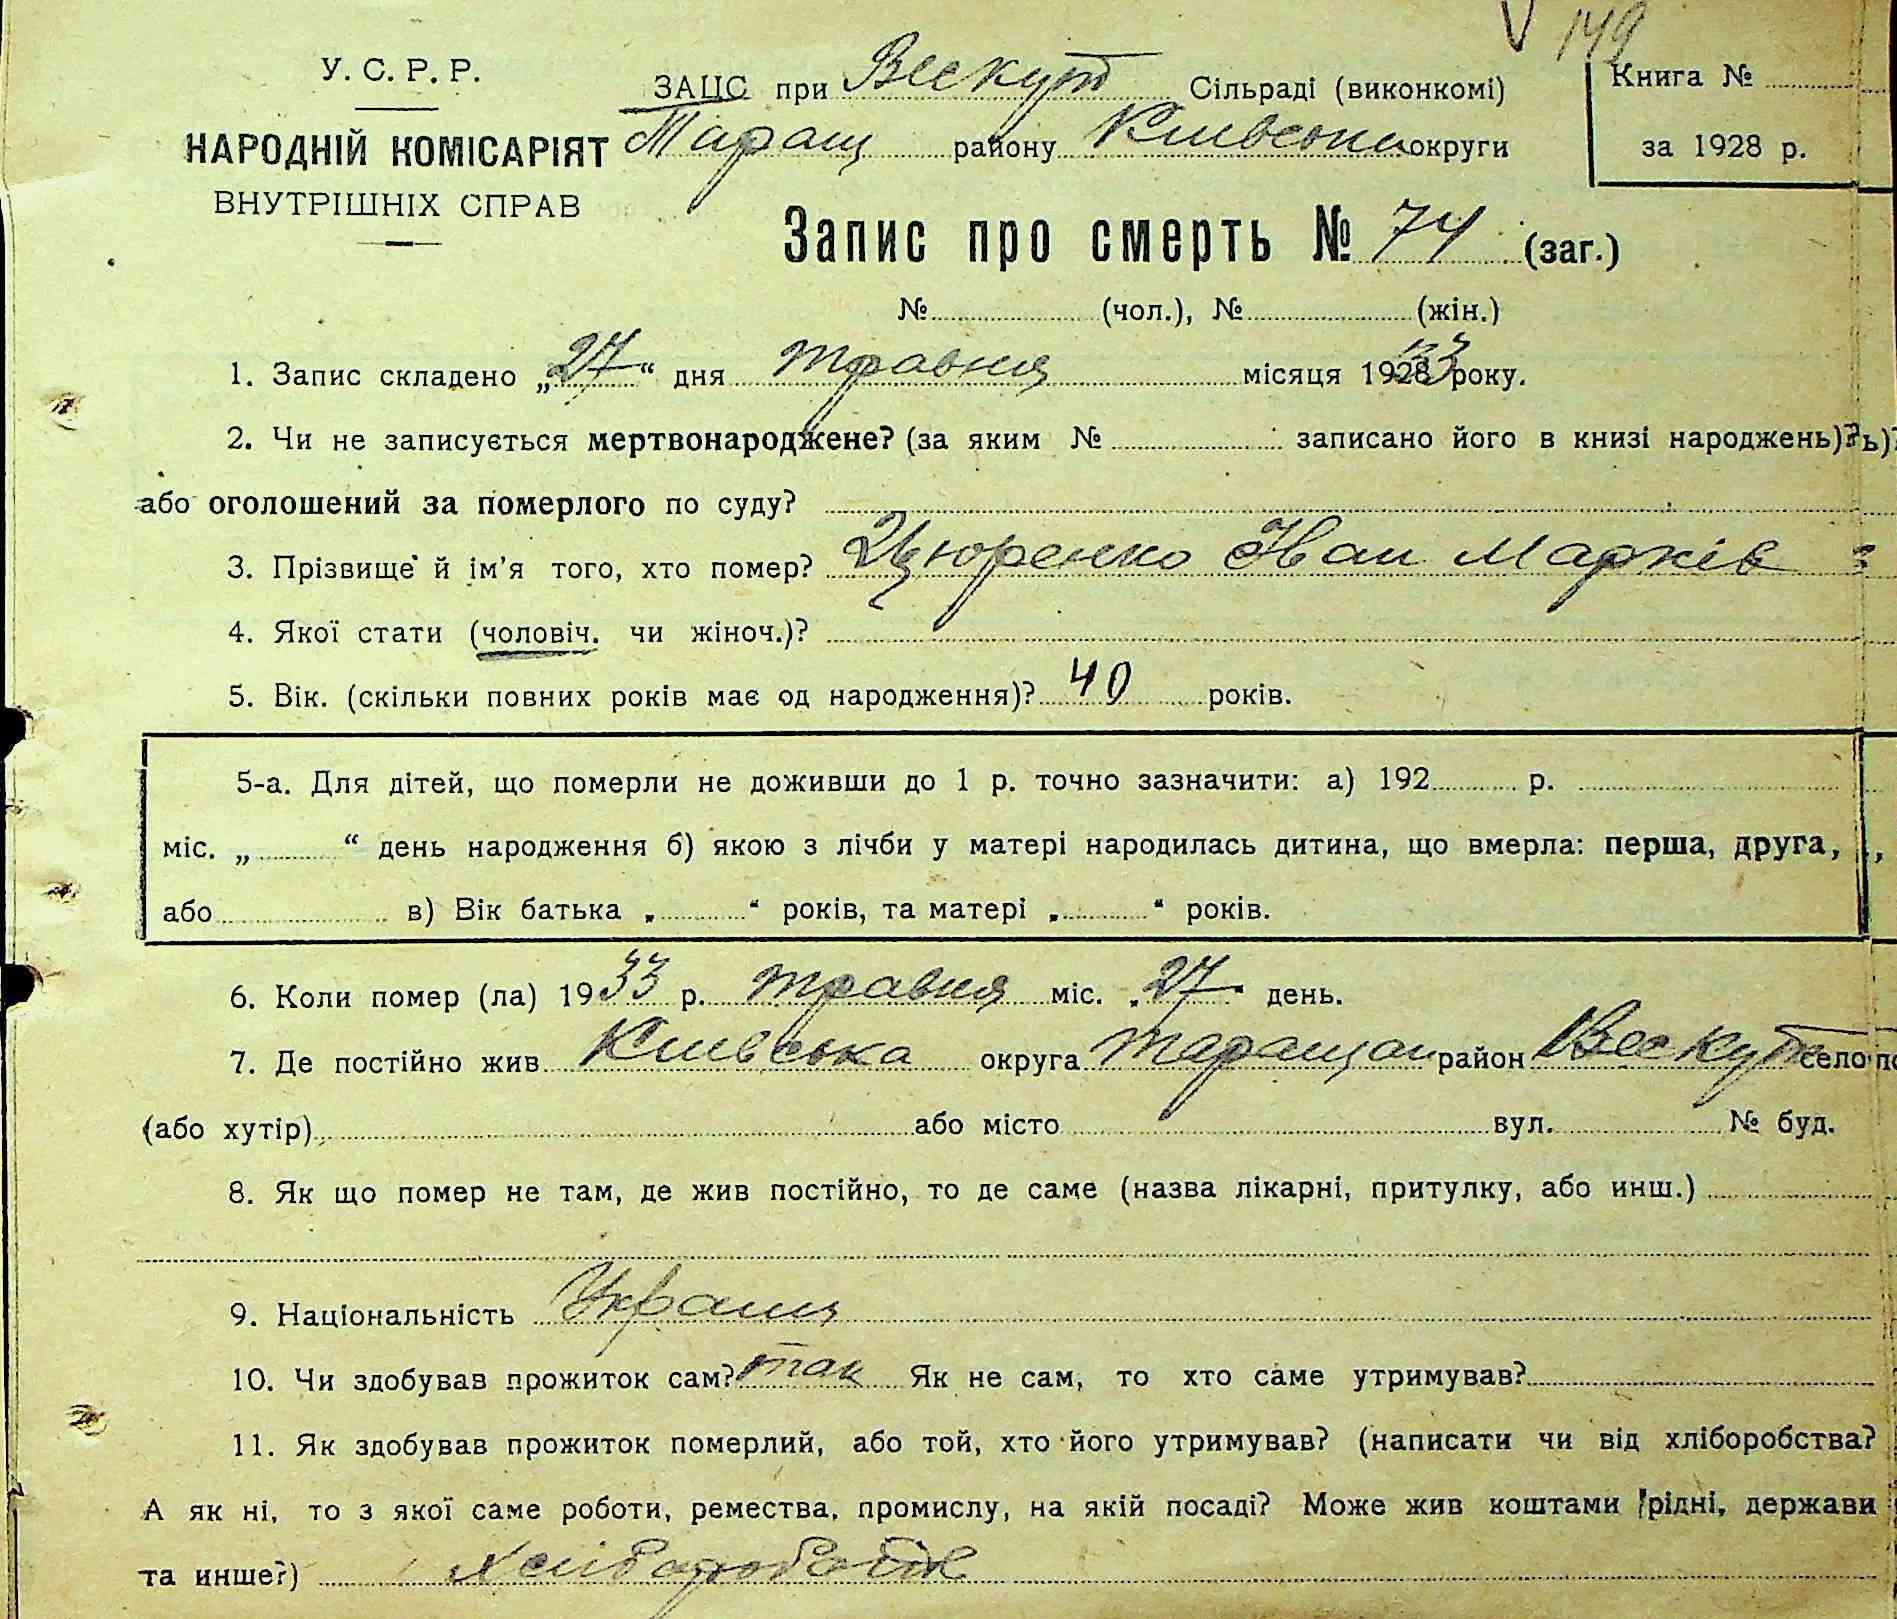 149
У. С. Р. Р.
НАРОДНІЙ КОМІСАРІЯТ
ВНУТРІШНІХ СПРАВ
ЗАЦС при Вескут Сільраді (виконкомі)
Таращ району Київськи округи
Книга №
за 1928 р.
Запис про смерть № 74 (заг.)
№ (чол.), № (жін.)
1. Запис складено „27“ дня травня місяця 192833 року.
2. Чи не записується мертвонароджене? (за яким № записано його в книзі народжень)?
або оголошений за померлого по суду?
3. Прізвище й ім’я того, хто помер? Цюренко Іван Марків
4. Якої стати (чоловіч. чи жіноч.)?
5. Вік. (скільки повних років має од народження)? 40 років.
5-а. Для дітей, що померли не доживши до 1 р. точно зазначити: а) 192 р.
міс. „ “ день народження б) якою з лічби у матері народилась дитина, що вмерла: перша, друга,
або в) Вік батька „ “ років, та матері „ “ років.
6. Коли помер (ла) 1933 р. травня міс. „27“ день.
7. Де постійно жив Київська округа Таращан район Вескут село
(або хутір) або місто вул. № буд.
8. Як що помер не там, де жив постійно, то де саме (назва лікарні, притулку, або инш.)
9. Національність Україн
10. Чи здобував прожиток сам? так Як не сам, то хто саме утримував?
11. Як здобував прожиток померлий, або той, хто його утримував? (написати чи від хліборобства?
А як ні, то з якої саме роботи, ремества, промислу, на якій посаді? Може жив коштами рідні, держави
та инше?) хліборобств